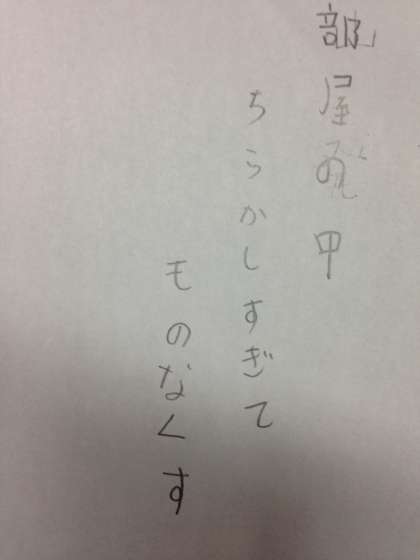 部屋の甲
ちらかしすぎて
モのなくす